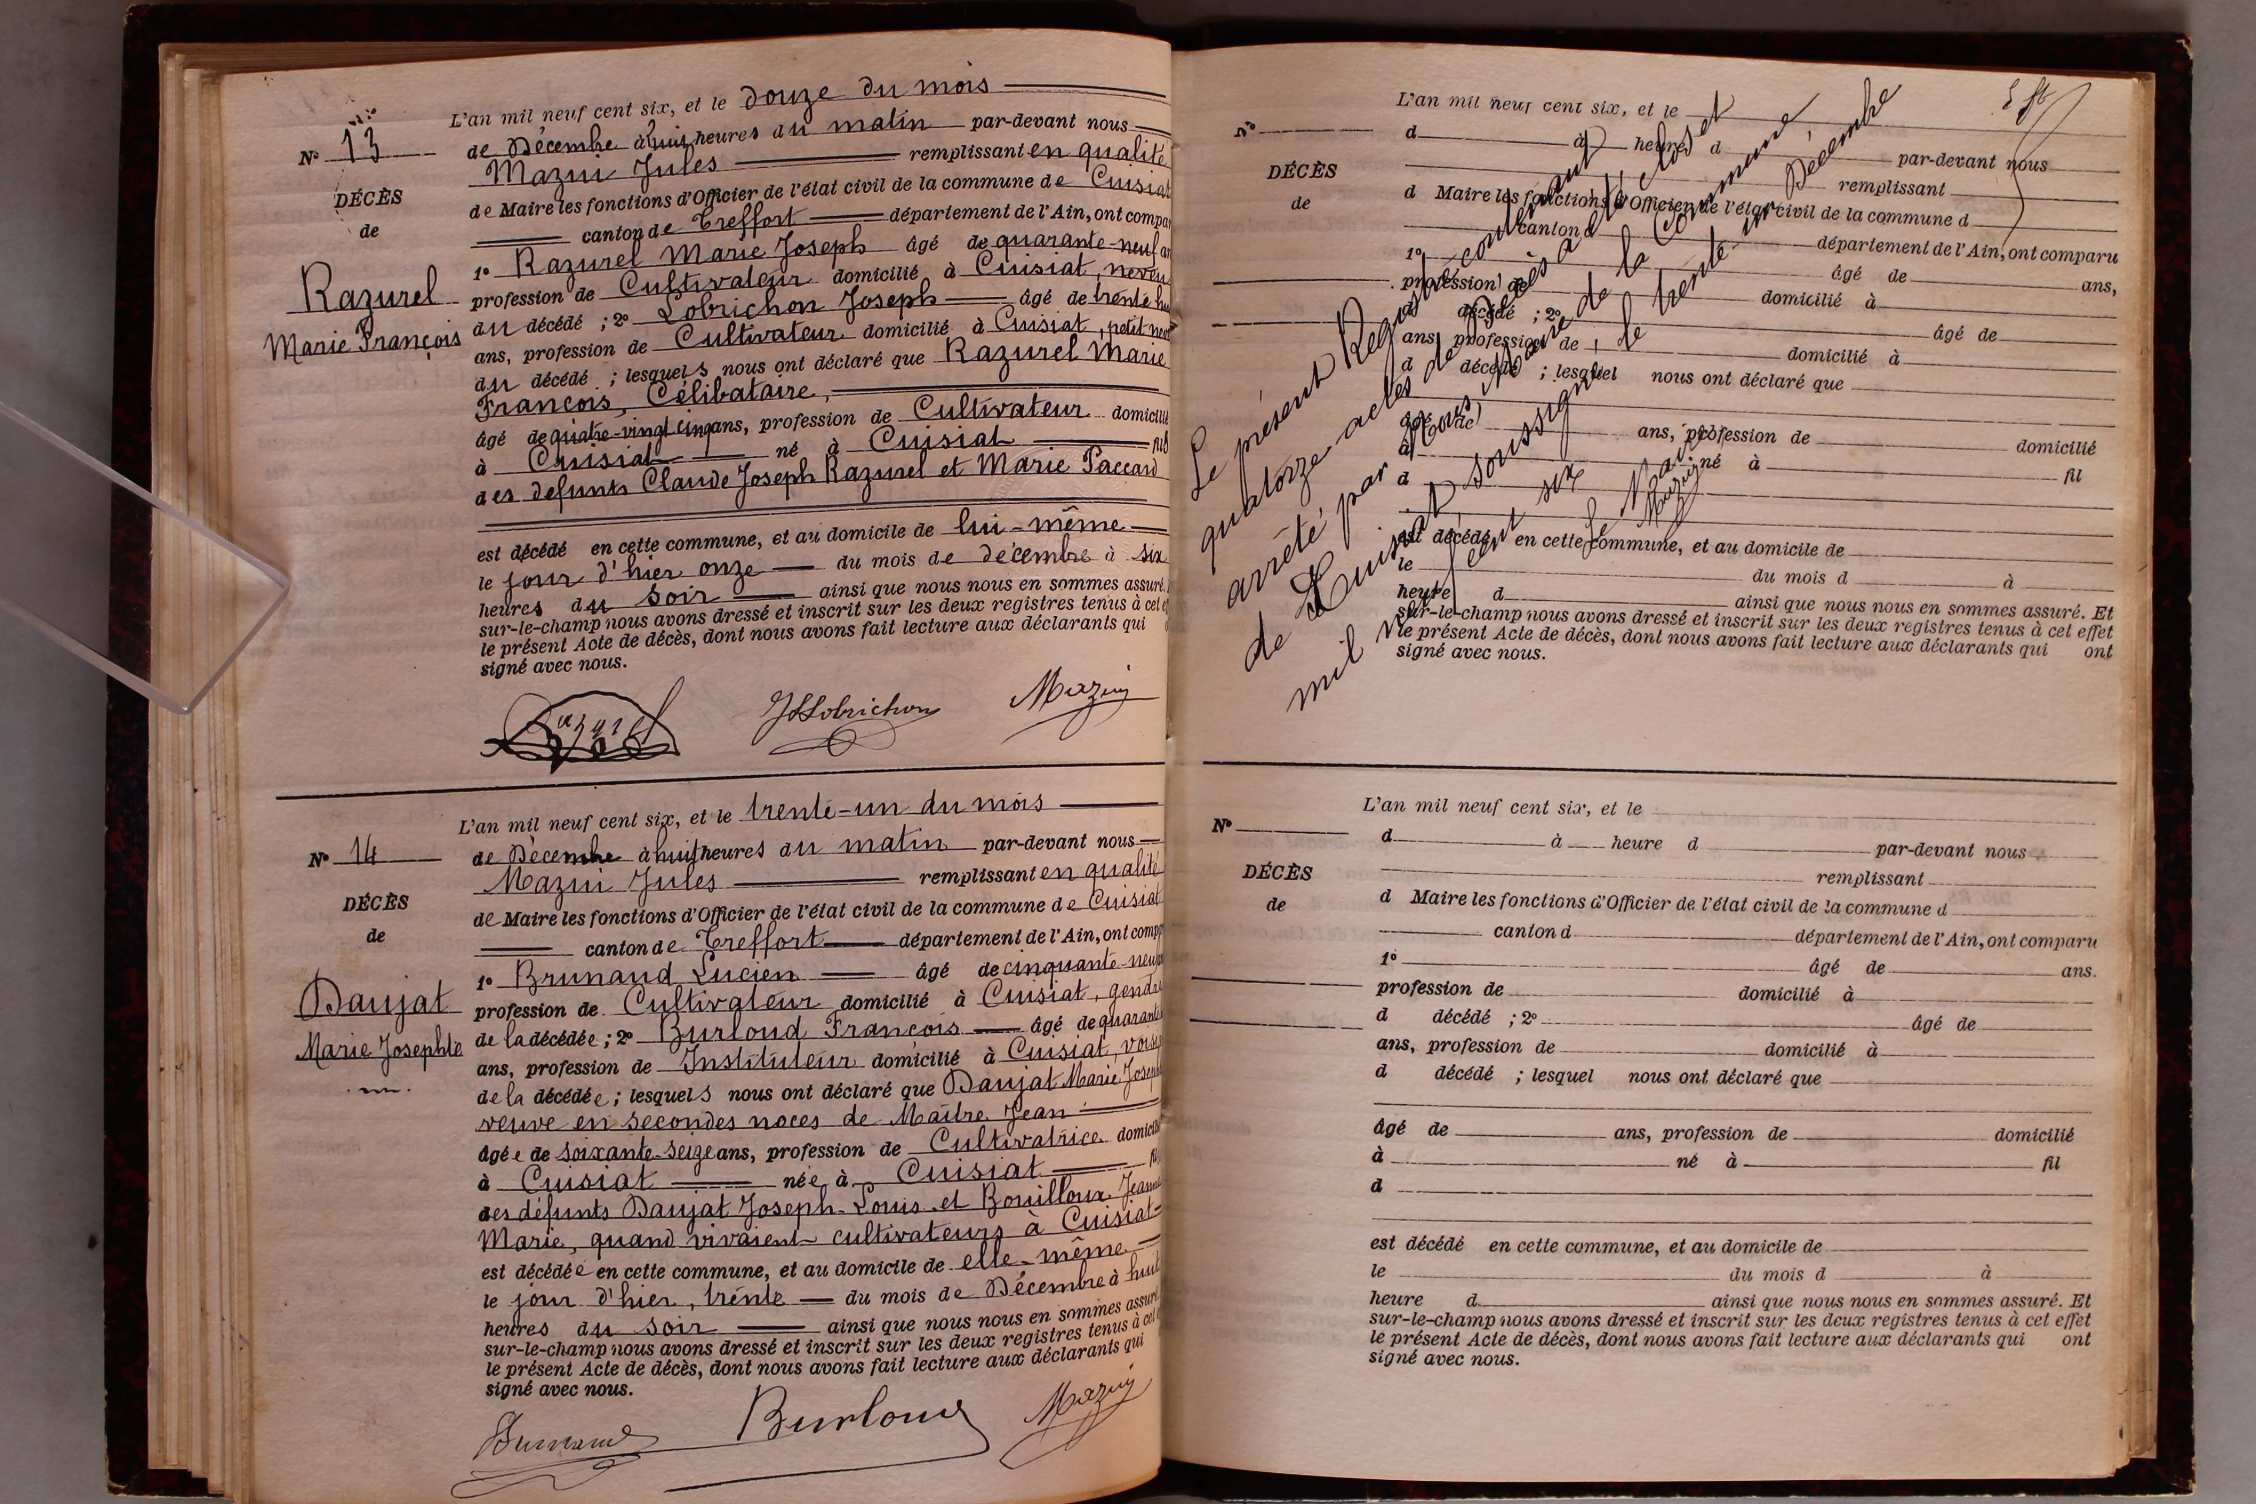 L'an mil neuf cent six, et le douze du mois
de Décembre à huit heures du matin par-devant nous
Mazui Jules remplissant en qualité
de Maire les fonctions d'Officier de l'état civil de la commune de Cuisiat
canton de Treffort département de l'Ain, ont compar
1° Razurel Marie Joseph âgé de quarante-neuf an
profession de Cultivateur domicilié à Cuisiat, neveu
du décédé ; 2° Lobrichon Joseph âgé de trente hu
ans, profession de Cultivateur domicilié à Cuisiat, petit neve
du décédé ; lesquels nous ont déclaré que Razurel Marie
François, Célibataire,
âgé de quatre-vingt cinq ans, profession de Cultivateur domicilié
à Cuisiat né à Cuisiat fils
des défunts Claude Joseph Razurel et Marie Paccard
est décédé en cette commune, et au domicile de lui-même
le jour d'hier onze du mois de décembre à six
heures du soir ainsi que nous nous en sommes assuré.
sur-le-champ nous avons dressé et inscrit sur les deux registres tenus à cet ef
le présent Acte de décès, dont nous avons fait lecture aux déclarants qui
signé avec nous.
N° 13
DÉCÈS
de
Razurel
Marie François
Razurel JLobrichon Mazuy
L'an mil neuf cent six, et le trente-un du mois
de Décembre à huit heures du matin par-devant nous
Mazui Jules remplissant en qualité
de Maire les fonctions d'Officier de l'état civil de la commune de Cuisiat
canton de Treffort département de l'Ain, ont comp
1° Brunaud Lucien âgé de cinquante-neuf
profession de Cultivateur domicilié à Cuisiat, gendre
de la décédée ; 2° Burloud François âgé de quarante
ans, profession de Instituteur domicilié à Cuisiat, voisi
de la décédée ; lesquels nous ont déclaré que Daujat Marie Joseph
veuve en secondes noces de Maître Jean
âgée de soixante-seize ans, profession de Cultivatrice domicili
à Cuisiat née à Cuisiat fil
des défunts Daujat Joseph-Louis et Bouilloux Jeanne
Marie, quand vivaient cultivateurs à Cuisiat
est décédée en cette commune, et au domicile de elle-même
le jour d'hier, trente du mois de Décembre à huit
heures du soir ainsi que nous nous en sommes assuré
sur-le-champ nous avons dressé et inscrit sur les deux registres tenus à cet
le présent Acte de décès, dont nous avons fait lecture aux déclarants qui
signé avec nous.
N° 14
DÉCÈS
de
Daujat
Marie Josephte
Brunaud Burloud Mazuy
L'an mil neuf cent six, et le
d à heure d par-devant nous
remplissant
d Maire les fonctions d'Officier de l'état civil de la commune d
canton d département de l'Ain, ont comparu
1° âgé de ans,
profession de domicilié à
d décédé ; 2° âgé de
ans, profession de domicilié à
d décédé ; lesquel nous ont déclaré que
âgé de ans, profession de domicilié
à né à fil
d
est décédé en cette commune, et au domicile de
le du mois d à
heure d ainsi que nous nous en sommes assuré. Et
sur-le-champ nous avons dressé et inscrit sur les deux registres tenus à cet effet
le présent Acte de décès, dont nous avons fait lecture aux déclarants qui ont
signé avec nous.
N°
DÉCÈS
de
Le présent Registre contenant
quatorze actes de décès a été clos et
arrêté par Nous, Maire de la Commune
de Cuisiat, soussigné, le trente-un Décembre
mil neuf cent six
Le Maire
Mazuy
L'an mil neuf cent six, et le
d à heure d par-devant nous
remplissant
d Maire les fonctions d'Officier de l'état civil de la commune d
canton d département de l'Ain, ont comparu
1° âgé de ans.
profession de domicilié à
d décédé ; 2° âgé de
ans, profession de domicilié à
d décédé ; lesquel nous ont déclaré que
âgé de ans, profession de domicilié
à né à fil
d
est décédé en cette commune, et au domicile de
le du mois d à
heure d ainsi que nous nous en sommes assuré. Et
sur-le-champ nous avons dressé et inscrit sur les deux registres tenus à cet effet
le présent Acte de décès, dont nous avons fait lecture aux déclarants qui ont
signé avec nous.
N°
DÉCÈS
de